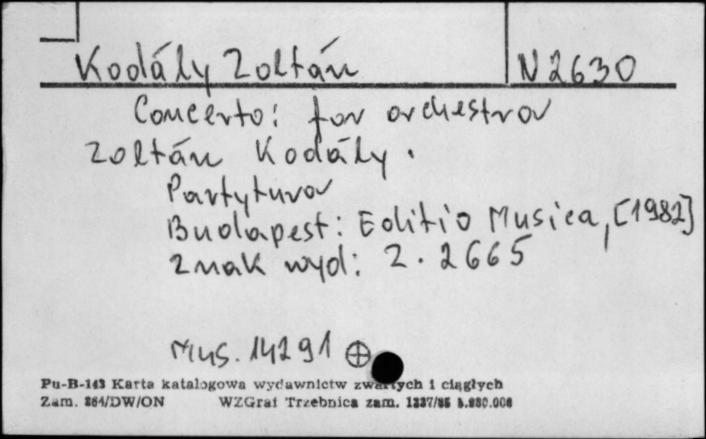 Kodály Zoltán N 2630
Concerto: for orchestra
Zoltán Kodály.
Partytura
Budapest: Editio Musica, [1982]
Znak wyd: Z. 2665
Mus. 14291
Pu-B-143 Karta katalogowa wydawnictw zwartych i ciągłych
Zam. 864/DW/ON WZGraf Trzebnica zam. 1337/85